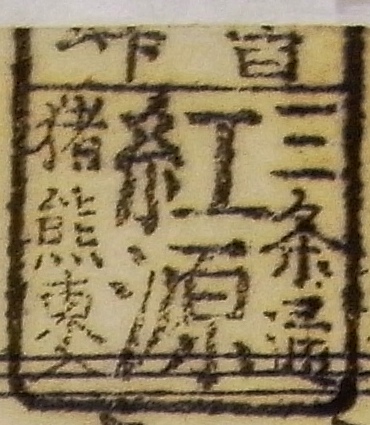 三条通
紅源
猪熊東入